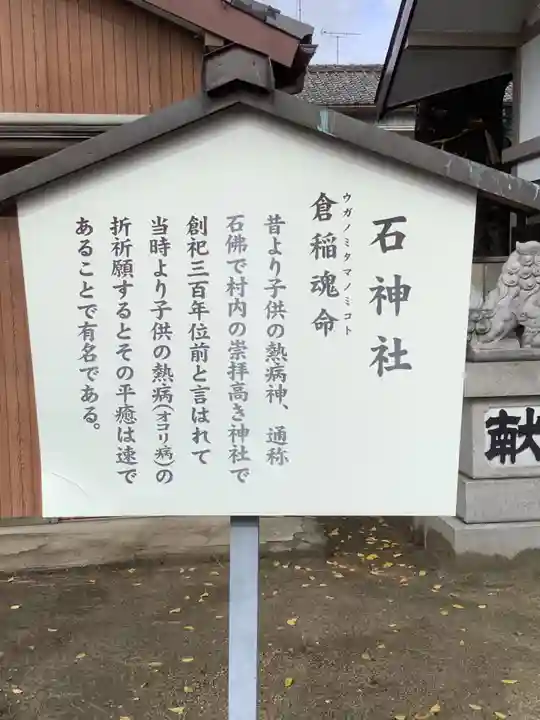 石神社
ウガノミタマノミコト
倉稲魂命
昔より子供の熱病神、通称
石佛で村内の崇拝高き神社で
創祀三百年位前と言はれて
当時より子供の熱病(オコリ病)の
折祈願するとその平癒は速で
あることで有名である。
献